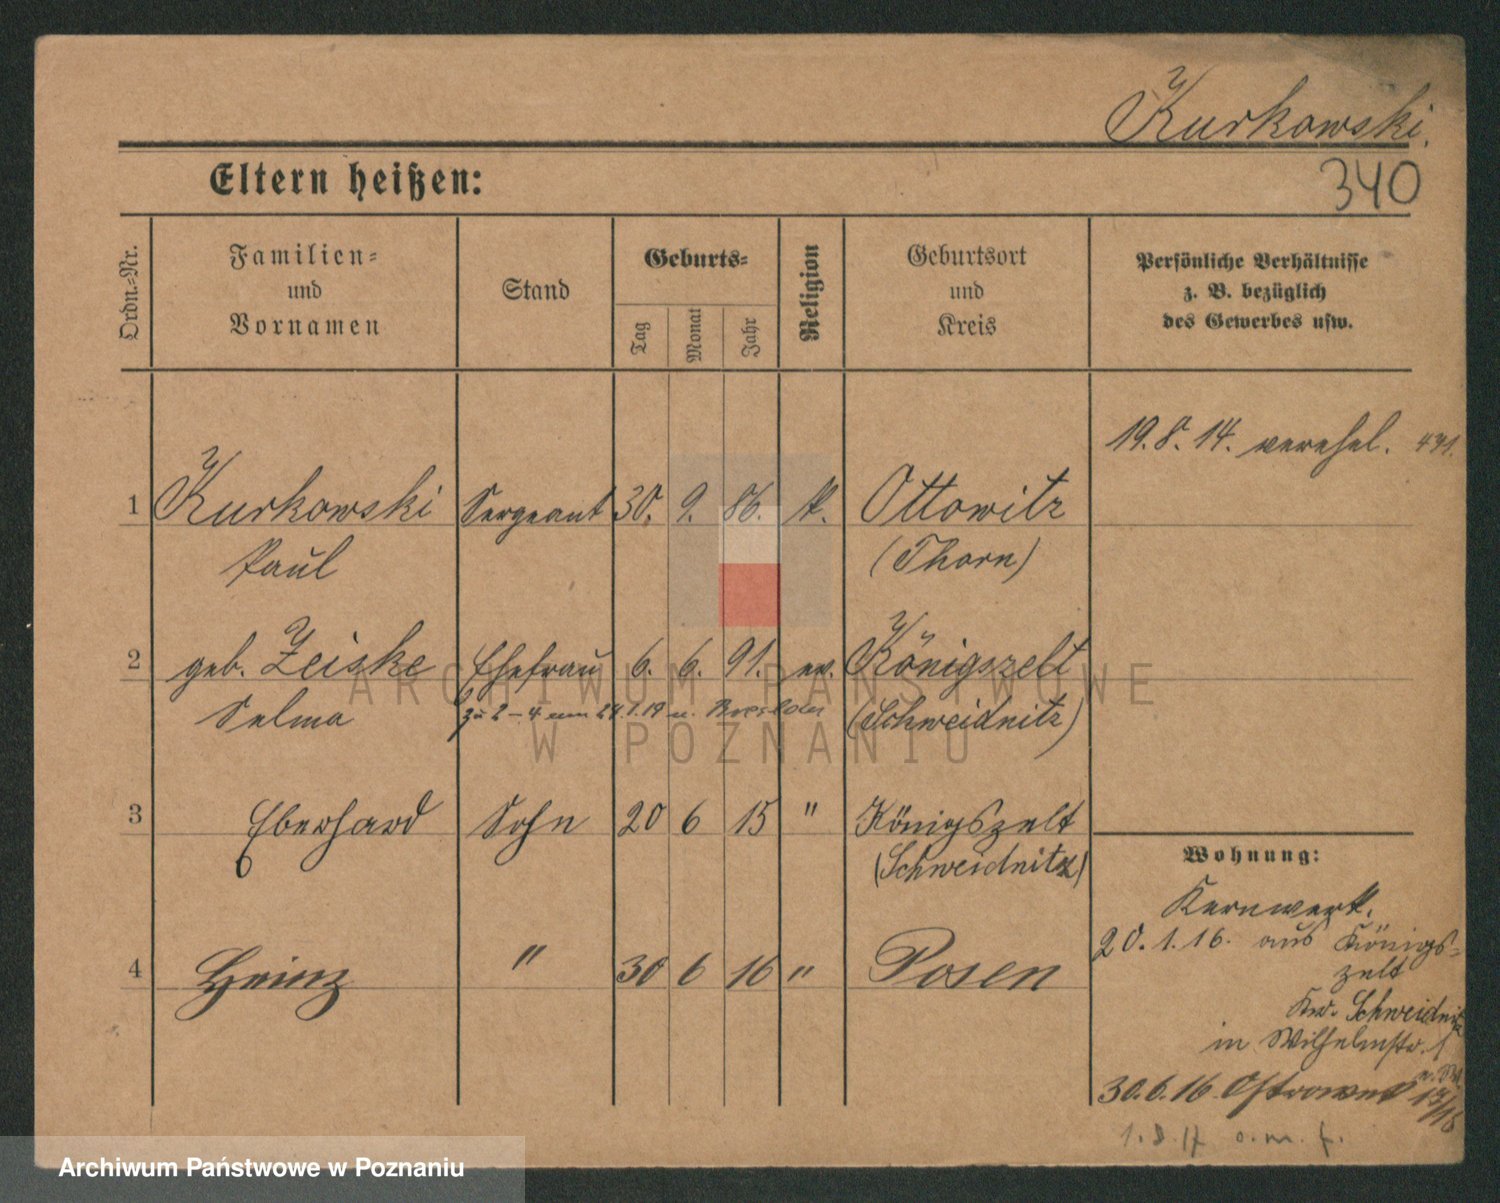 Kurkowski.
Eltern heißen:
340
Ordn.-Nr.
Familien-
und
Vornamen
Stand
Geburts-
Tag
Monat
Jahr
Religion
Geburtsort
und
Kreis
Persönliche Verhältnisse
z. B. bezüglich
des Gewerbes usw.
19.8.14. verehel. 431.
1 Kurkowski Sergeant 30. 9. 86. k. Ottowitz
Paul (Thorn)
2 geb. Zeiske Ehefrau 6. 6. 91. ev. Königszelt
Selma (Schweidnitz)
zu 2-4 am 24.7.19 n. Breslau
3 Eberhard Sohn 20 6 15 " Königszelt
(Schweidnitz)
4 Heinz " 30 6 16 " Posen
Wohnung:
Kernwerk.
20.1.16. aus Königs-
zelt
Krs. Schweidnitz
in Wilhelmstr. 1
30.6.16 Ostrowek 13/15
o. m. f.
ARCHIWUM PAŃSTWOWE
W POZNANIU
Archiwum Państwowe w Poznaniu